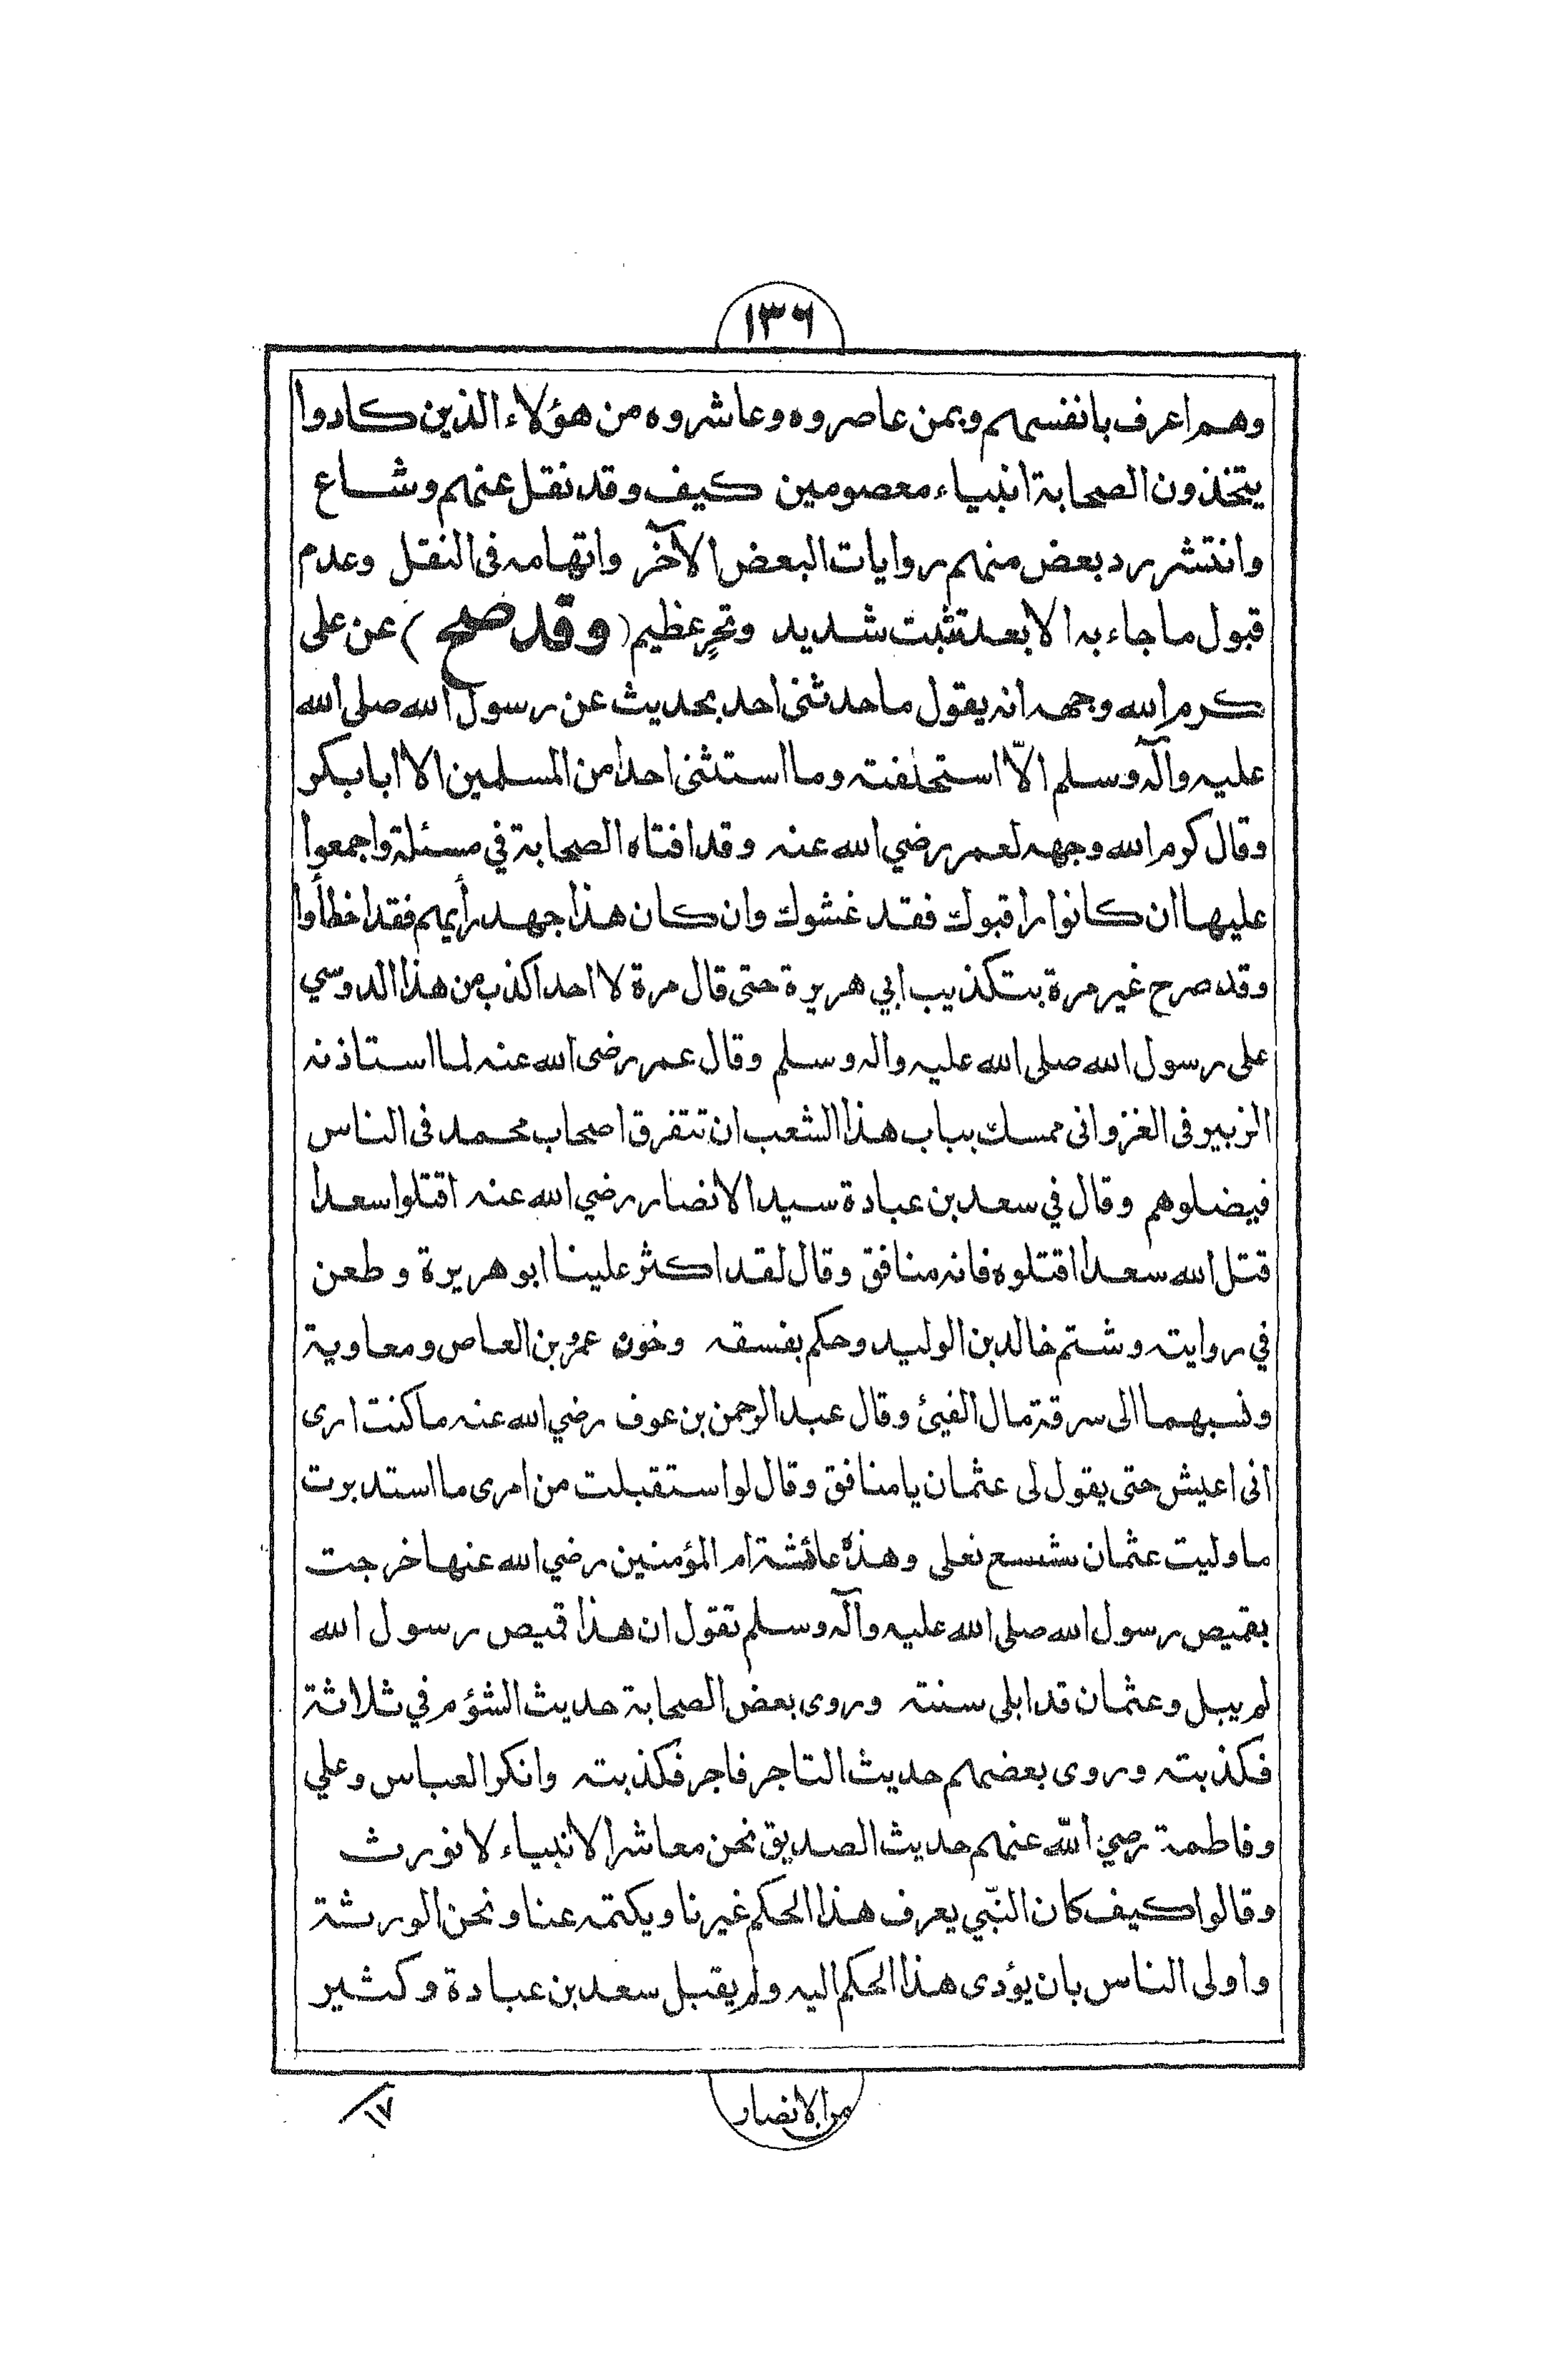 ١٣٦
وهم اعرف بانفسهم وبمن عاصروه وعاشروه من هؤلاء الذين كادوا
يتخذون الصحابة انبياء معصومين كيف وقد نقل عنهم وشاع
وانتشر رد بعض منهم روايات البعض الآخر واتهامه فى النقل وعدم
قبول ما جاء به الا بعد تثبت شديد وتحرٍ عظيم (وقد صح) عن على
كرم الله وجهه انه يقول ما حدثنى احد بحديث عن رسول الله صلى الله
عليه وآله وسلم الّا استحلفته وما استثنى احدا من المسلمين الا ابا بكر
وقال كرم الله وجهه لعمر رضي الله عنه وقد افتاه الصحابة في مسئلة واجمعوا
عليها ان كانوا راقبوك فقد غشوك وان كان هذا جهد رأيهم فقد اخطأوا
وقد صرح غير مرة بتكذيب ابي هريرة حتى قال مرة لا احد اكذب من هذا الدوسي
على رسول الله صلى الله عليه واله وسلم وقال عمر رضى الله عنه لما استاذنه
الزبير فى الغزو انى ممسك بباب هذا الشعب ان تتفرق اصحاب محمد فى الناس
فيضلوهم وقال في سعد بن عبادة سيد الانصار رضي الله عنه اقتلوا سعدا
قتل الله سعدا اقتلوه فانه منافق وقال لقد اكثر علينا ابو هريرة وطعن
في روايته وشتم خالد بن الوليد وحكم بفسقه وخون عمرو بن العاص ومعاوية
ونسبهما الى سرقة مال الفيئ وقال عبد الرحمن بن عوف رضي الله عنه ما كنت ارى
انى اعيش حتى يقول لى عثمان يا منافق وقال لو استقبلت من امرى ما استدبرت
ما وليت عثمان شسع نعلى وهذه عائشة ام المؤمنين رضي الله عنها خرجت
بقميص رسول الله صلى الله عليه وآله وسلم تقول ان هذا قميص رسول الله
لم يبل وعثمان قد ابلى سنته وروى بعض الصحابة حديث الشؤم في ثلاثة
فكذبته وروى بعضهم حديث التاجر فاجر فكذبته وانكر العباس وعلي
وفاطمة رضي الله عنهم حديث الصديق نحن معاشر الانبياء لا نورث
وقالوا كيف كان النّبي يعرف هذا الحكم غيرنا ويكتمه عنا ونحن الورثة
واولى الناس بان يؤدى هذا الحكم اليه ولم يقبل سعد بن عبادة وكثير
من الانصار
١٧